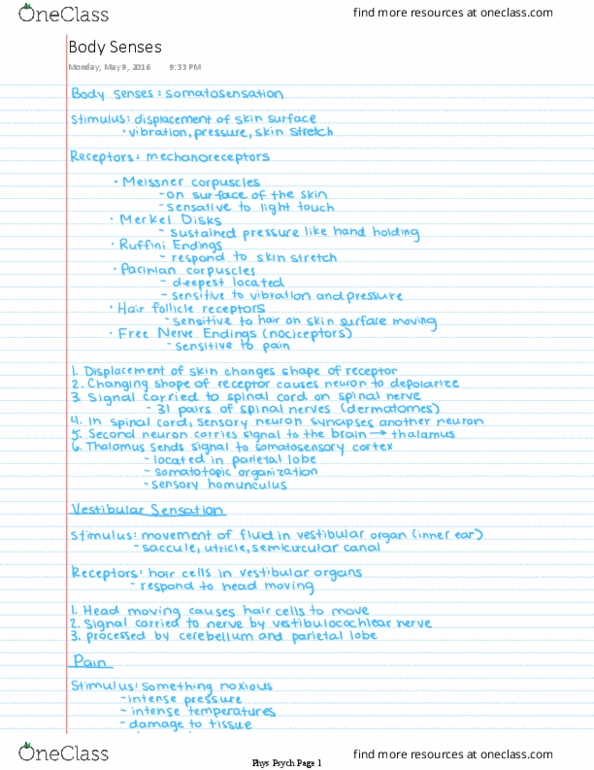 OneClass
find more resources at oneclass.com
Body Senses
Monday, May 9, 2016 9:33 PM
Body senses: somatosensation
Stimulus: displacement of skin surface
• vibration, pressure, skin stretch
Receptors: mechanoreceptors
• Meissner corpuscles
- on surface of the skin
- sensative to light touch
• Merkel Disks
- sustained pressure like hand holding
• Ruffini Endings
- respond to skin stretch
• Pacinian corpuscles
- deepest located
- sensitive to vibration and pressure
• Hair follicle receptors
- sensitive to hair on skin surface moving
• Free Nerve Endings (nociceptors)
- sensitive to pain
1. Displacement of skin changes shape of receptor
2. Changing shape of receptor causes neuron to depolarize
3. Signal carried to spinal cord on spinal nerve
- 31 pairs of spinal nerves (dermatomes)
4. In spinal cord, sensory neuron synapses another neuron
5. Second neuron carries signal to the brain → thalamus
6. Thalamus sends signal to somatosensory cortex
- located in parietal lobe
- somatotopic organization
- sensory homunculus
Vestibular Sensation
Stimulus: movement of fluid in vestibular organ (inner ear)
- saccule, utricle, semicircular canal
Receptors: hair cells in vestibular organs
- respond to head moving
1. Head moving causes hair cells to move
2. Signal carried to nerve by vestibulocochlear nerve
3. processed by cerebellum and parietal lobe
Pain
Stimulus: something noxious
- intense pressure
- intense temperatures
- damage to tissue
OneClass
Phys Psych Page 1
find more resources at oneclass.com